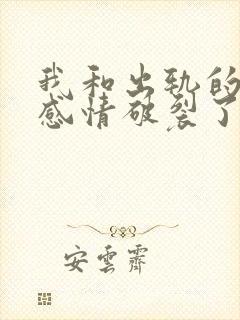 我和出轨的
感情破裂了
安云霁